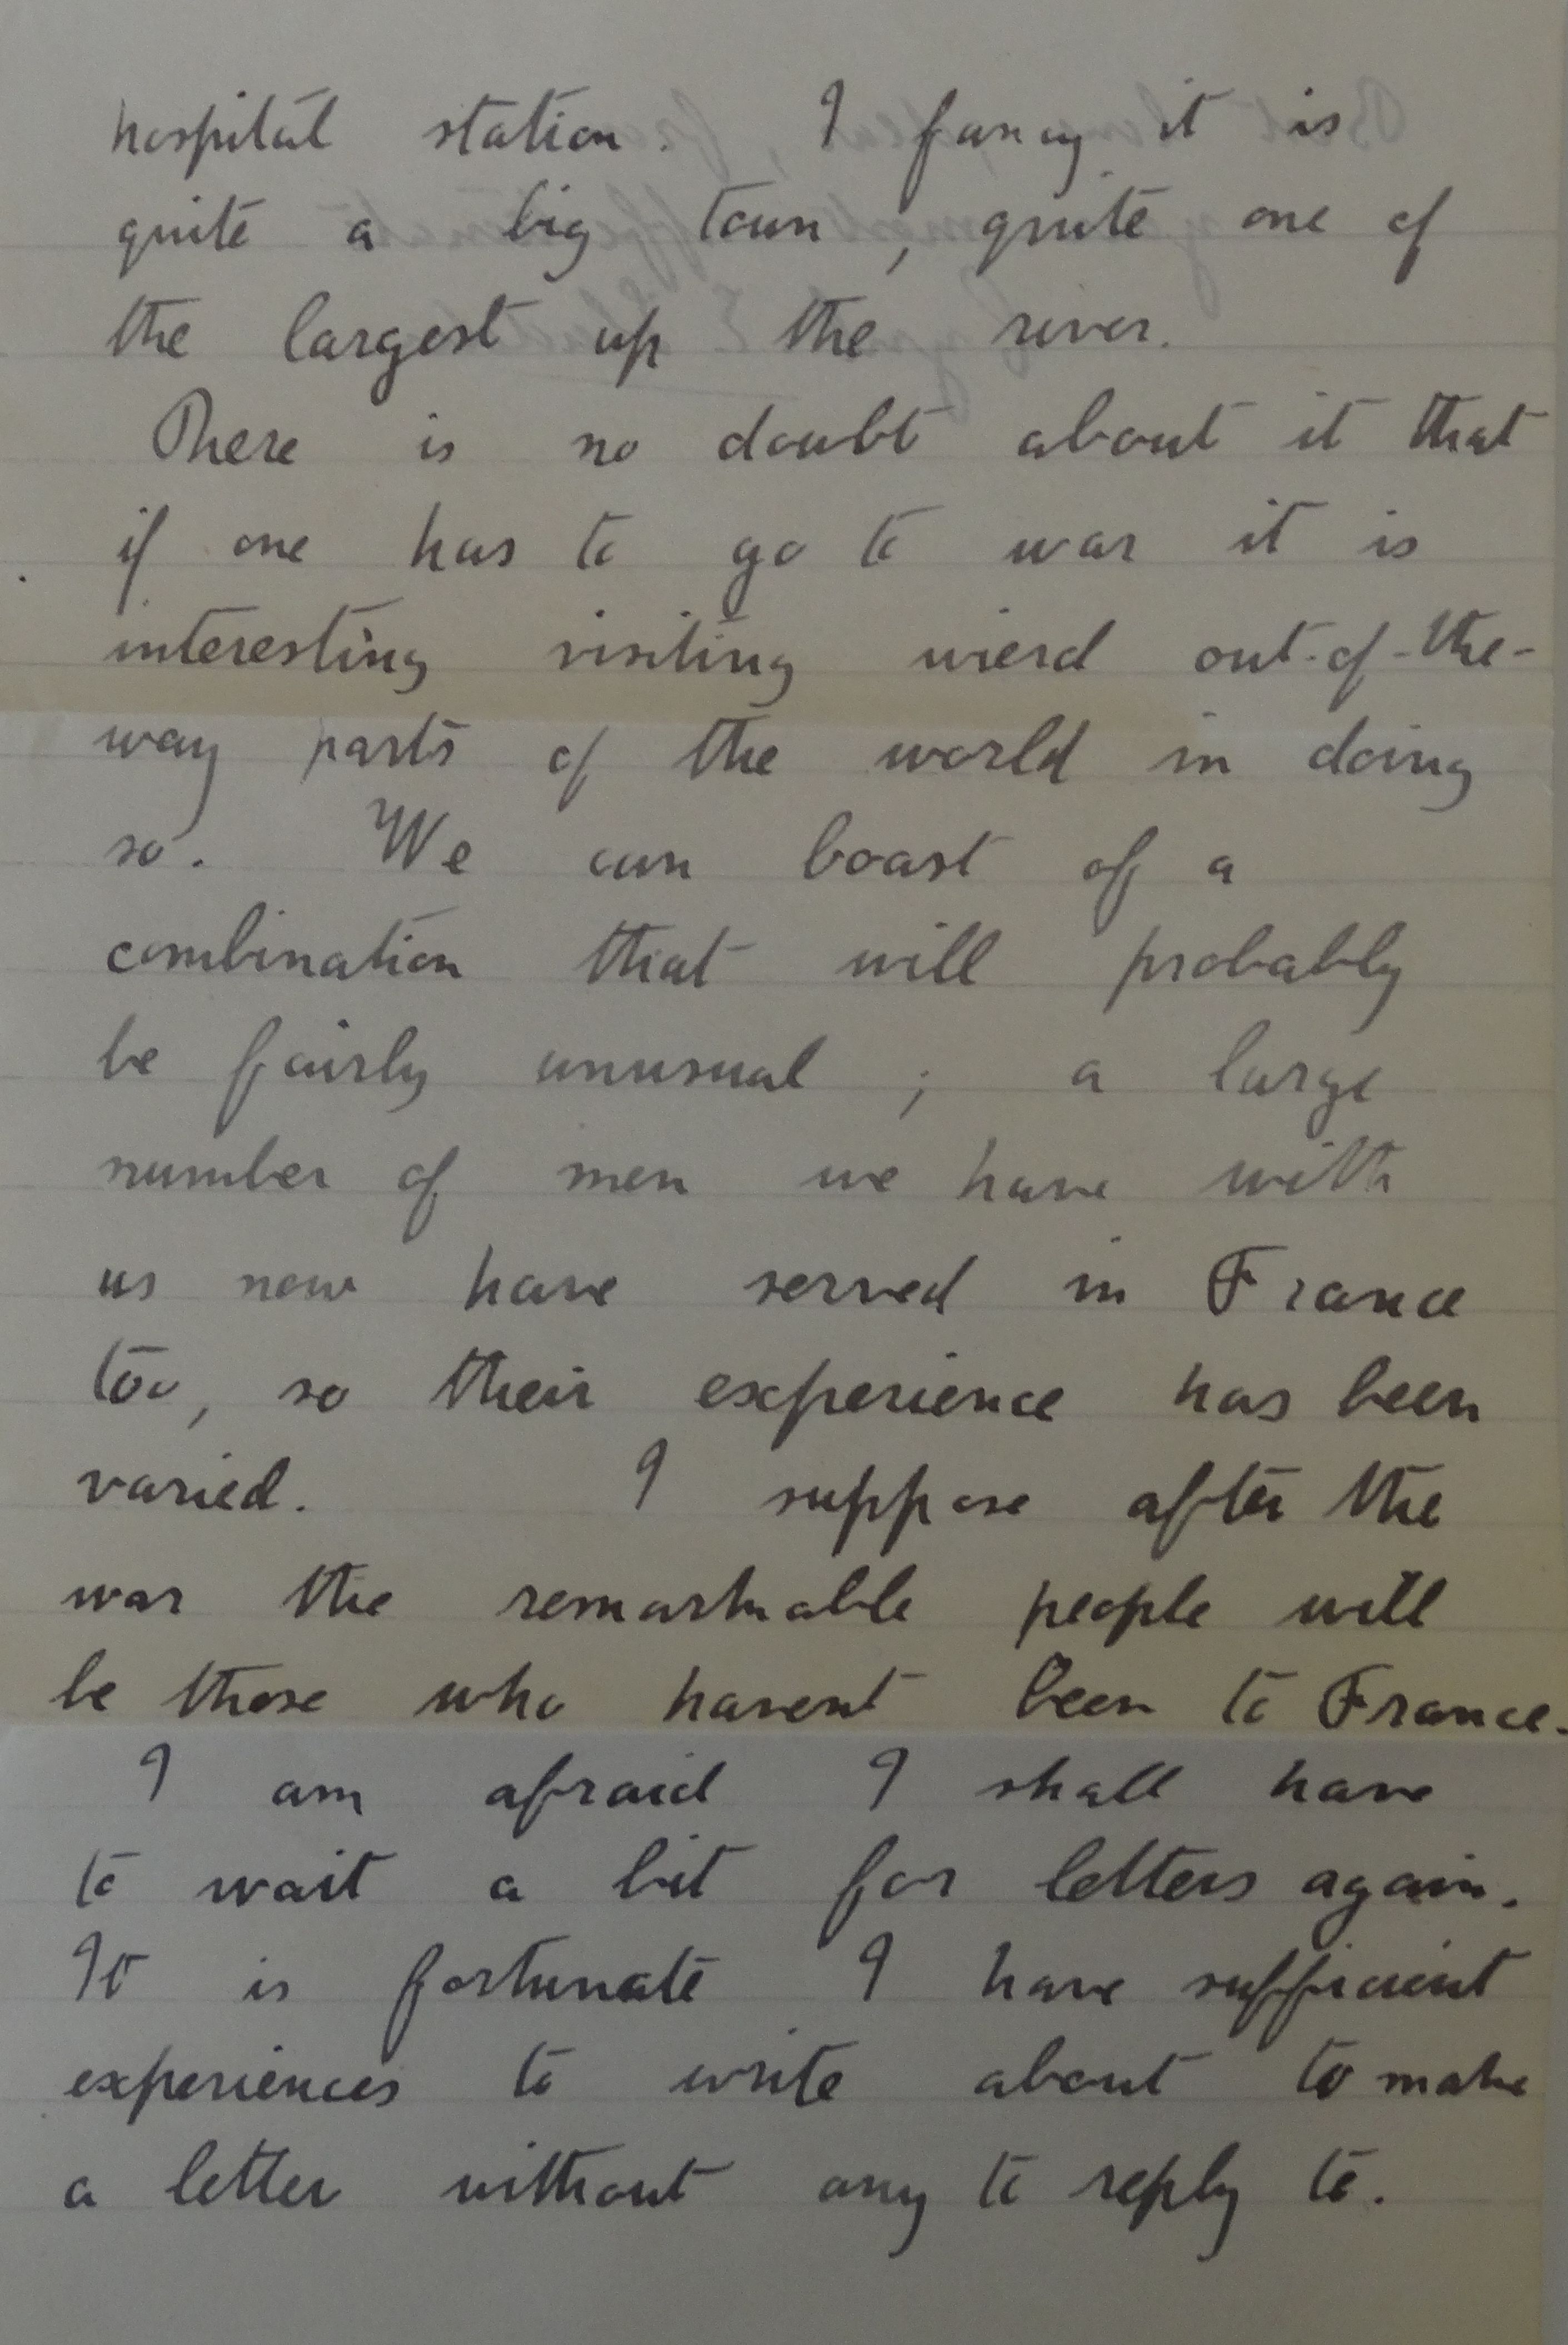 hospital station. I fancy it is
quite a big town, quite one of
the largest up the river.
There is no doubt about it that
if one has to go to war it is
interesting visiting wierd out-of-the-
way parts of the world in doing
so. We can boast of a
combination that will probably
be fairly unusual; a large
number of men we have with
us now have served in France
too, so their experience has been
varied. I suppose after the
war the remarkable people will
be those who havent been to France.
I am afraid I shall have
to wait a bit for letters again.
It is fortunate I have sufficient
experiences to write about to make
a letter without any to reply to.